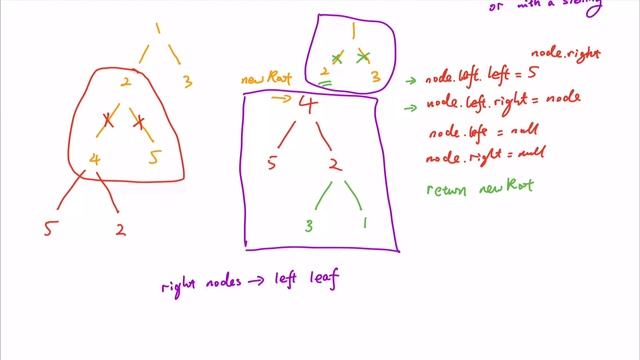 or with a sibling
1
2 3
4 5
5 2
1
2 3
newRoot
4
5 2
3 1
node.right
→ node.left.left = 5
→ node.left.right = node
node.left = null
node.right = null
return newRoot
right nodes → left leaf